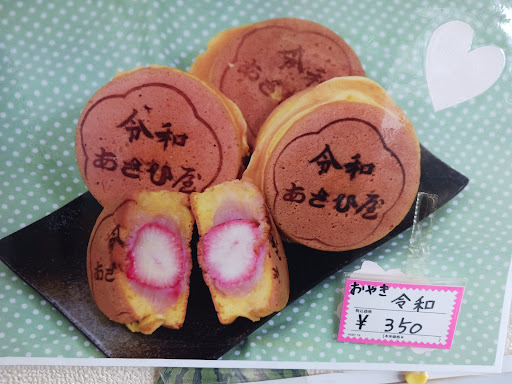 令和
あさひ
令和
あさひ屋
令和
あさひ屋
あ
おやき 令和
税込価格
¥ 350